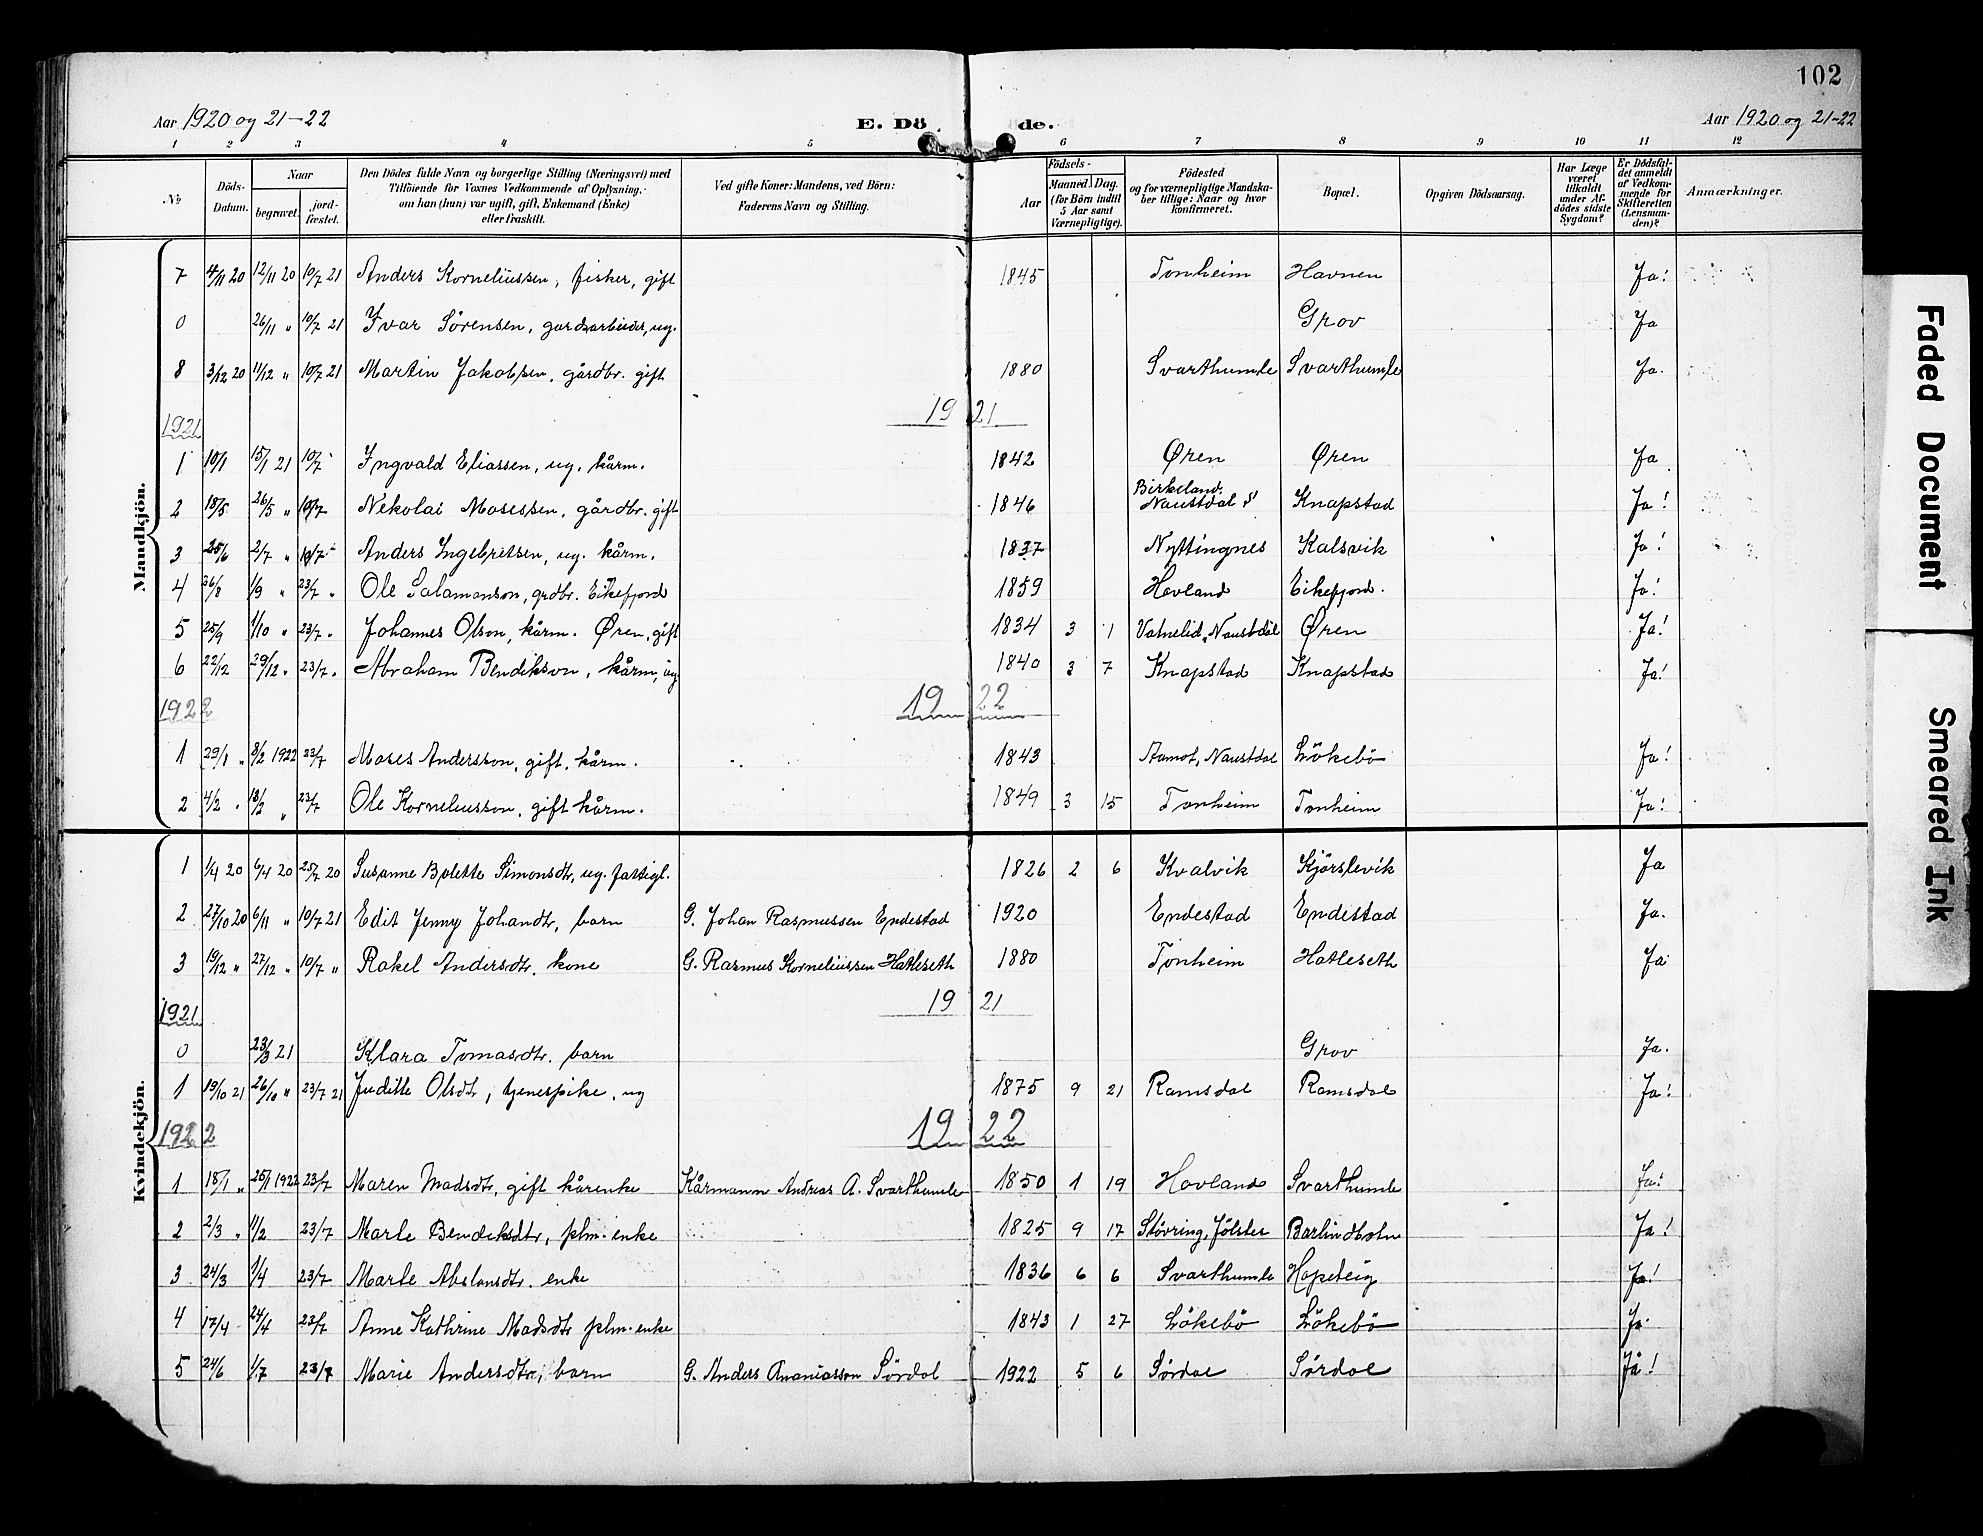 102
Aar 1920 og 21-22 E. Dö de. Aar 1920 og 21-22
1 2 3 4 5 6 7 8 9 10 11 12
No Döds-Datum. Naar begravet. jord-fæstet. Den Dödes fulde Navn og borgerlige Stilling (Næringsvei) med Tilföiende for Voxnes Vedkommende af Oplysning, om han (hun) var ugift, gift, Enkemand (Enke) eller fraskilt. Ved gifte Koner: Mandens, ved Börn: Faderens Navn og Stilling. Födsels- Aar Maaned. Dag. (for Börn indtil 5 Aar samt Værnepligtige). Födested og for værnepligtige Mandskaber tillige: Naar og hvor konfirmeret. Bopæl. Opgiven Dödsaarsag. Har Læge været tilkaldt under Afdödes sidste Sygdom? Er Dödsfaldet anmeldt af Vedkommende for Skifteretten (Lensmanden)? Anmærkninger.
Mandkjön.
7 4/11 20 12/11 20 10/7 21 Anders Korneliussen, fisker, gift 1845 Tonheim Havnen Ja!
0 26/11 " 10/7 21 Ivar Sörensen, gardsarbeider, ug. Grov Ja
8 3/12 20 11/12 " 10/7 21 Martin Jakobsen, gårdbr. gift 1880 Svarthumle Svarthumle Ja.
1921 1921
1 10/1 15/1 21 10/7 Ingvald Eliassen, ug. kårm. 1842 Øren Øren Ja
2 18/5 26/5 " 10/7 Nekolai Mosessen, gårdbr. gift 1846 Birkeland, Naustdal Knapstad Ja!
3 25/6 2/7 " 10/7 Anders Ingebretsen, ug. kårm. 1837 Nyttingnes Kalsvik Ja!
4 26/8 1/9 " 23/7 " Ole Salamonson, grdbr. Eikefjord 1859 Hovland Eikefjord. Ja!
5 25/9 1/10 " 23/7 " Johannes Olson, kårm. Øren, gift 1834 3 1 Vatnelid, Naustdal Øren Ja!
6 22/12 29/12 " 23/7 " Abraham Bendikson, kårm, ug 1840 3 7 Knapstad Knapstad Ja!
1922 1922
1 29/1 " 8/2 1922 23/7 Moses Andersson, gift, kårm. 1843 Aamot, Naustdal Lökebö Ja!
2 4/2 " 18/2 " 23/7 Ole Korneliusson, gift kårm. 1849 3 15 Tonheim Tonheim Ja!
Kvindekjön.
1 1/4 20 6/4 20 25/7 20 Susanne Bolette Simonsdtr, ug. fattigl. 1826 2 6 Kvalvik Kjörslevik Ja
2 27/10 20 6/11 " 10/7 21 Edit Jenny Johandtr, barn G. Johan Rasmussen Endestad 1920 Endestad Endestad Ja.
3 19/12 " 27/12 " 10/7 " Rakel Andersdtr. kone G. Rasmus Korneliussen Hatleseth 1880 Tonheim Hatleseth Ja
1921 1921
0 23/3 21 Klara Tomasdtr. barn Grov Ja.
1 19/10 21 26/10 " 23/7 21 Juditte Olsdtr, tjenespike, ug 1875 9 21 Ramsdal Ramsdal Ja!
1922 1922
1 18/1 " 25/1 1922 23/7 Maren Madsdtr, gift kårenke Kårmann Andreas A. Svarthumle 1850 1 19 Hovland Svarthumle Ja!
2 2/3 " 11/2 23/7 Marte Bendiksdtr, plm. enke 1825 9 17 Stövring, Jölster Barlindbotn Ja!
3 24/3 1/4 23/7 Marte Abslonsdtr. enke 1836 6 6 Svarthumle Hopeteig Ja!
4 17/4 24/4 23/7 Anne Kathrine Madsdtr plm. enke 1843 1 27 Lökebö Lökebö Ja.
5 24/6 1/7 23/7 Marie Andersdtr, barn G. Anders Ananiasson Sördal 1922 5 6 Sördal Sördal Ja!
Faded Document
Smeared Ink